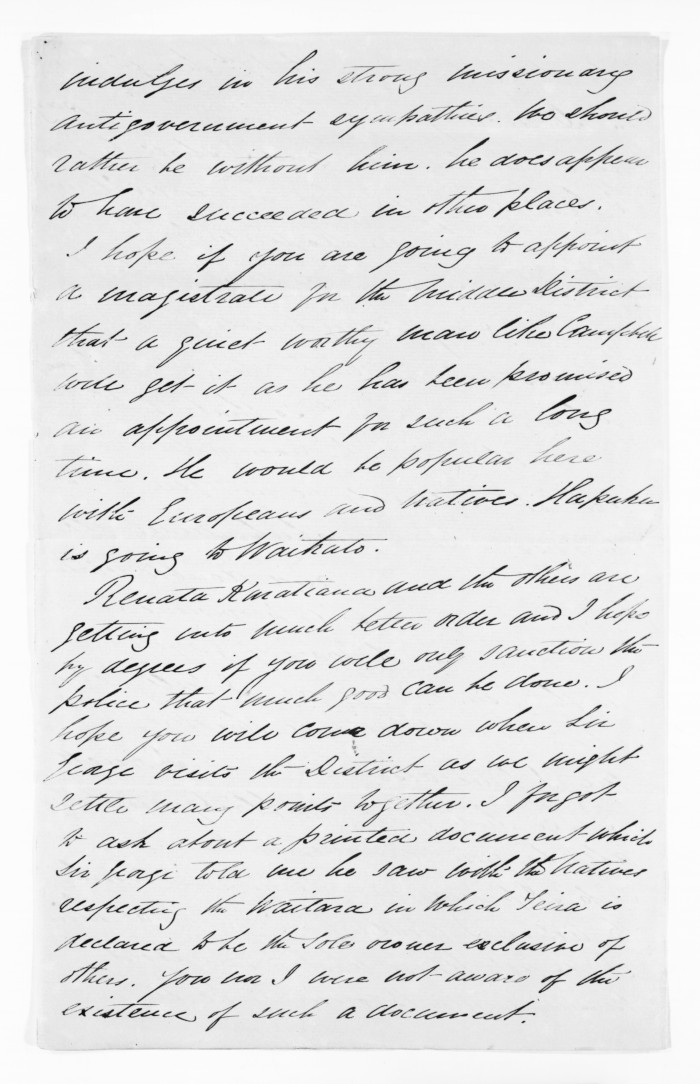 indulges in his strong missionary
antigovernment sympathies. We should
rather be without him. he does appear
to have succeeded in other places.
I hope if you are going to appoint
a magistrate for the Middle District
that a quiet worthy man like Campbell
will get it as he has been promised
an appointment for such a long
time. He would be popular here
with Europeans and Natives. Hapuku
is going to Waikato.
Renata Karatiana and the others are
getting into much better order and I hope
by degrees if you will only sanction the
police that much good can be done. I
hope you will come down when Sir
George visits the District as we might
settle many points together. I forgot
to ask about a printed document which
Sir George told me he saw with the Natives
respecting the Waitara in which Teira is
declared to be the Sole owner exclusive of
others. You nor I were not aware of the
existence of such a document.